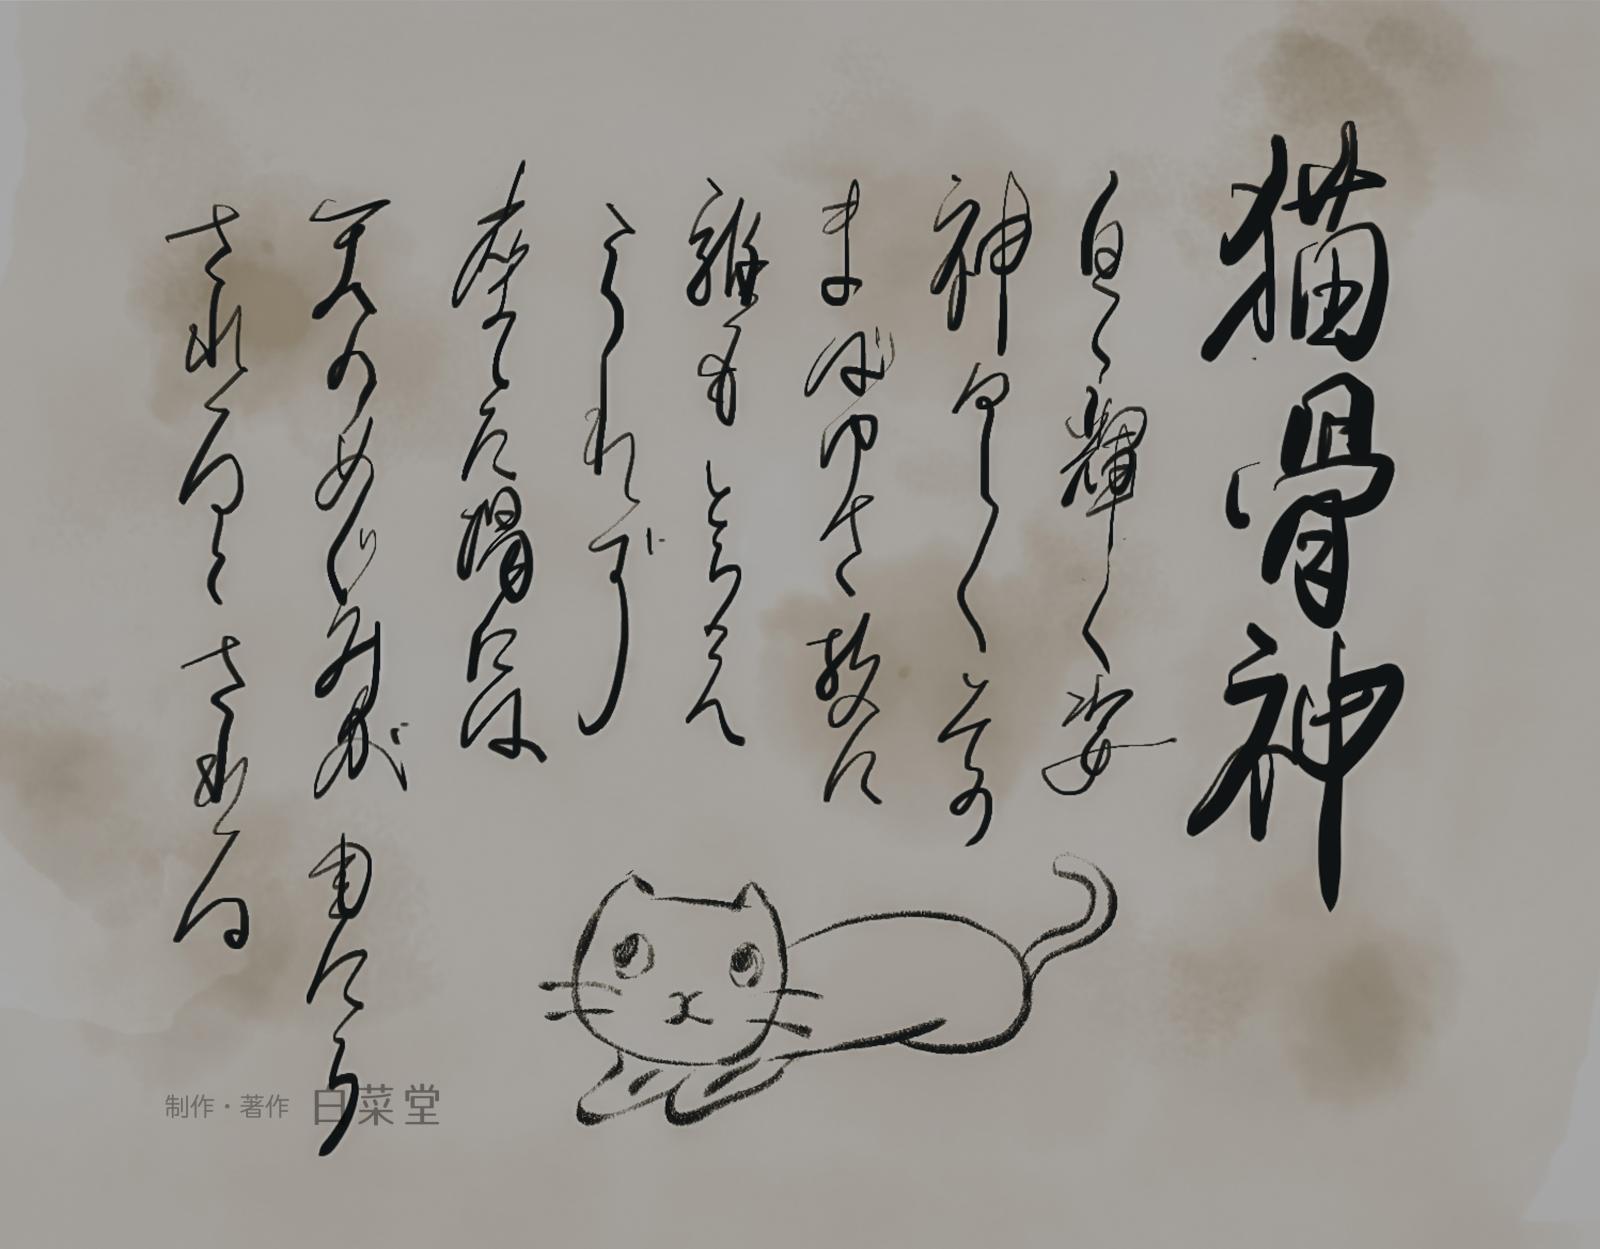 猫骨神
白く輝く姿
神々しく その
まばゆさ 故に
誰も とらえ
られず
座した場には
天のめぐみが 東にら
されると される
制作・著作 白菜堂